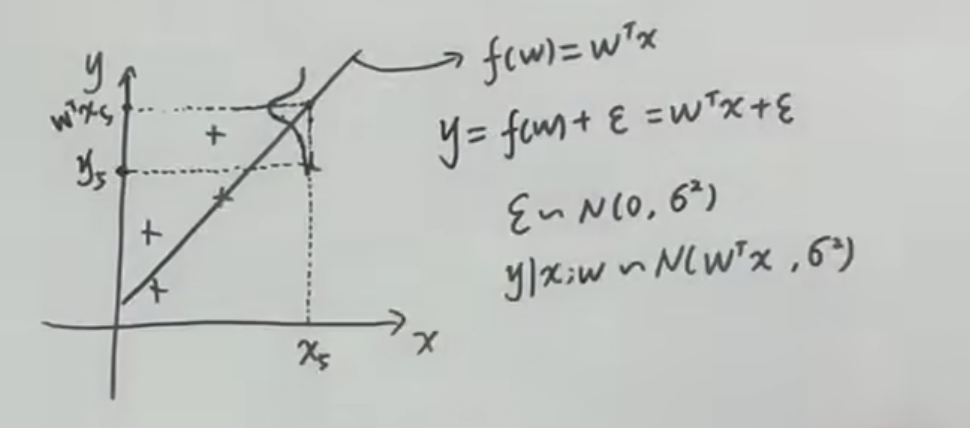 y
wᵀx₅
y₅
x₅
x
f(w)=wᵀx
y=f(w)+ε=wᵀx+ε
ε~N(0,σ²)
y|x;w~N(wᵀx,σ²)